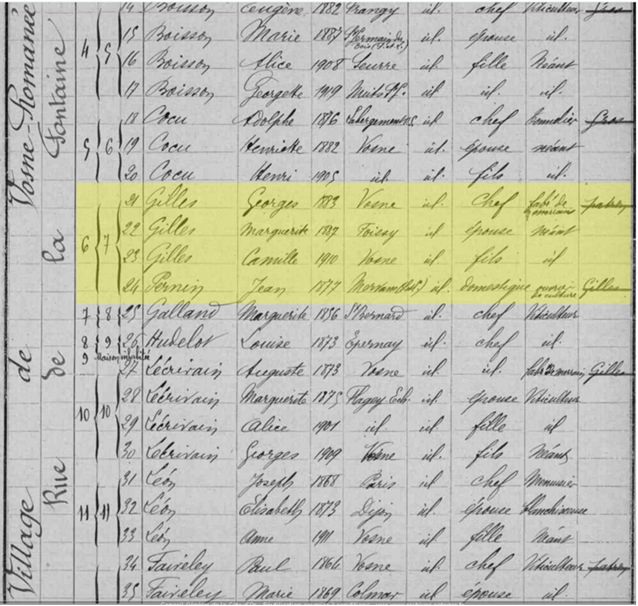 Village de Vosne-Romanée
Rue de la Fontaine
14 Boisson Eugène 1882 Brangy id. chef Viticulteur Gros
4 5 15 Boisson Marie 1887 St Germain des id. épouse id.
16 Boisson Alice 1908 Seurre id. fille Néant
17 Boisson Georgette 1919 Nuits St G. id. id. id.
18 Cocu Adolphe 1876 id. chef Gros
5 6 19 Cocu Henriette 1882 Vosne id. épouse néant
20 Cocu Henri 1905 id. id. fils id.
21 Gilles Georges 1883 Vosne id. Chef fabt de patron
6 7 22 Gilles Marguerite 1887 Foissy id. épouse néant
23 Gilles Camille 1910 Vosne id. fils id
24 Pernin Jean 1877 id. domestique ouvrier de culture Gilles
7 8 25 Galland Marguerite 1856 St Bernard id. chef Viticulteur
8 9 26 Hudelot Louise 1873 Epernay id. chef id.
9 Maison inhabitée
27 Lécrivain Auguste 1873 Vosne id. id. Gilles
10 10 28 Lécrivain Marguerite 1875 Flagey Ech. id. épouse Viticulteur
29 Lécrivain Alice 1901 id. id. fille id
30 Lécrivain Georges 1909 Vosne id. fils Néant
31 Léon Joseph 1868 Paris id. chef Menuisier
11 11 32 Léon Elisabeth 1873 Dijon id. épouse blanchisseuse
33 Léon Anne 1911 Vosne id. fille Néant
34 Faiveley Paul 1866 Vosne id. chef Viticulteur patron
35 Faiveley Marie 1869 Colmar id. épouse id.